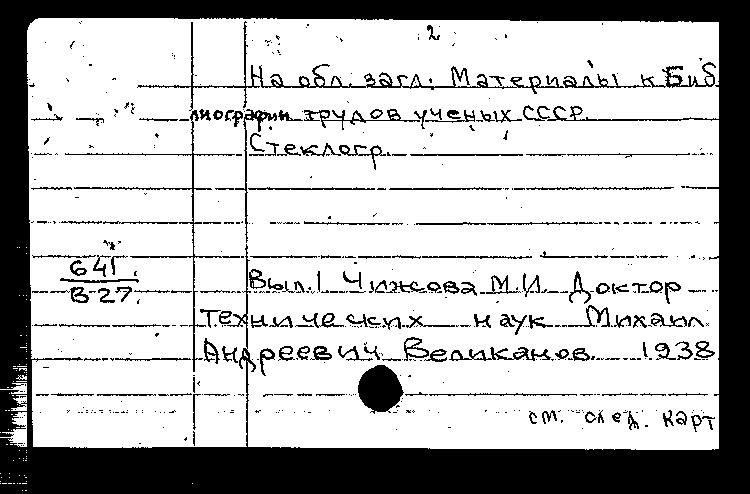 2
На обл. загл: Материалы к Биб
лиографии трудов ученых СССР.
Стеклогр.
641
В-27.
Вып.1 Чижова М.И. Доктор
технических наук Михаил
Андреевич Великанов. 1938
см. след. карт